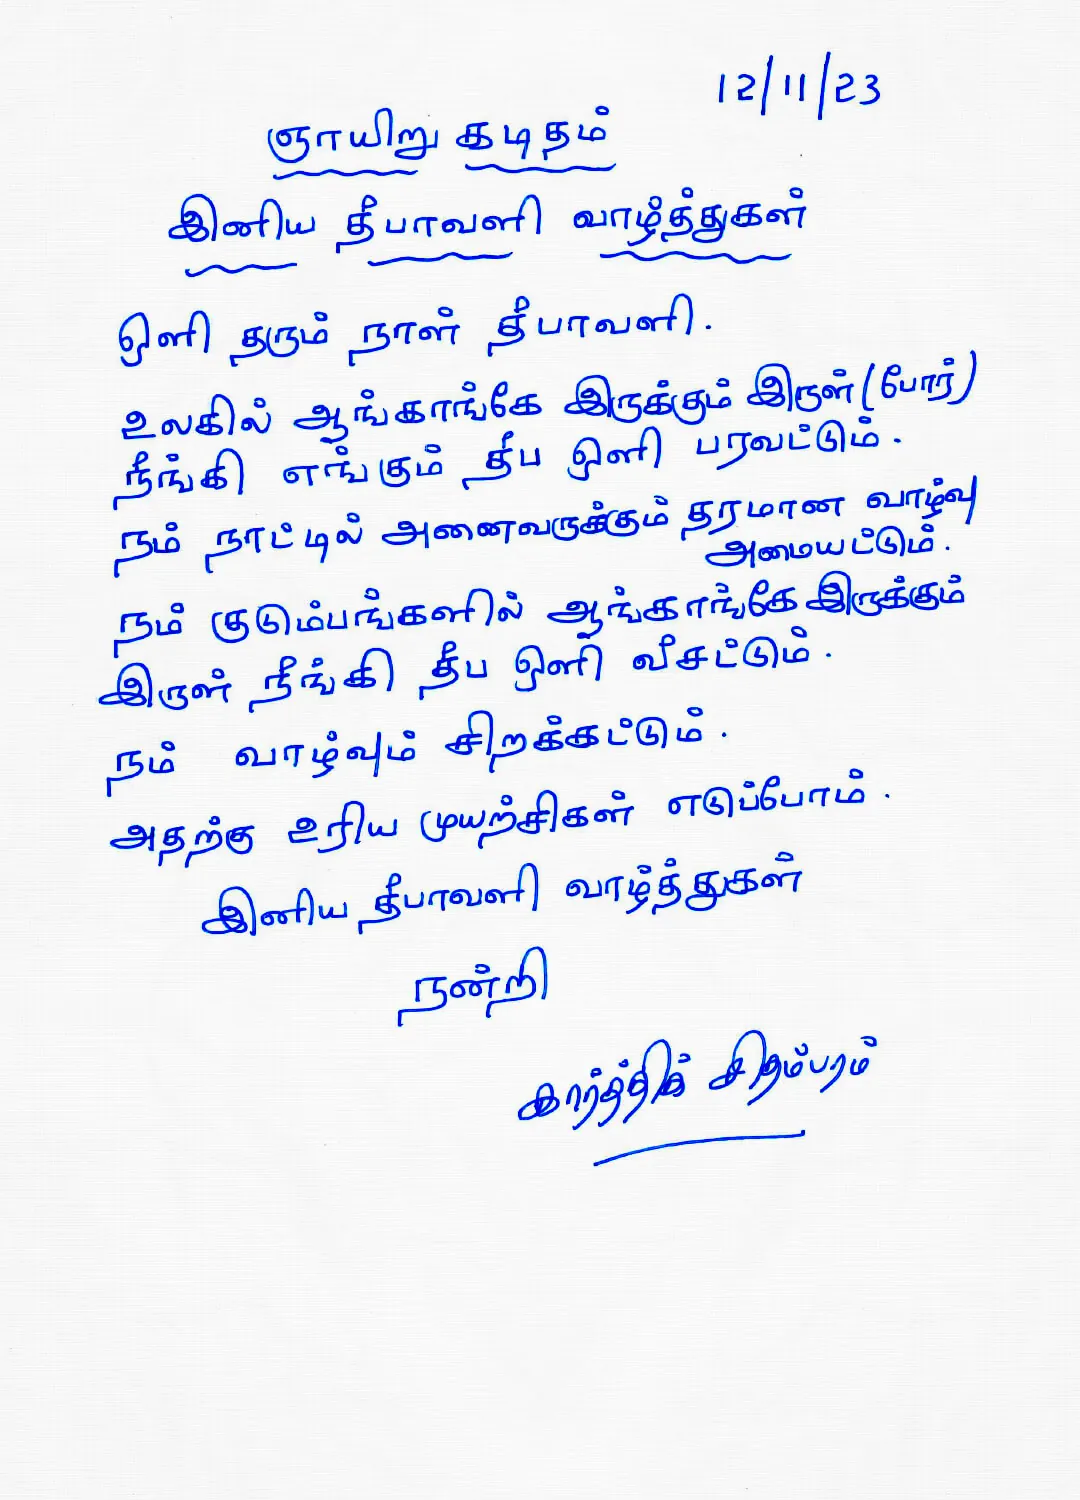 12/11/23
ஞாயிறு கடிதம்
இனிய தீபாவளி வாழ்த்துகள்
ஒளி தரும் நாள் தீபாவளி.
உலகில் ஆங்காங்கே இருக்கும் இருள் (போர்)
நீங்கி எங்கும் தீப ஒளி பரவட்டும்.
நம் நாட்டில் அனைவருக்கும் தரமான வாழ்வு
அமையட்டும்.
நம் குடும்பங்களில் ஆங்காங்கே இருக்கும்
இருள் நீங்கி தீப ஒளி வீசட்டும்.
நம் வாழ்வும் சிறக்கட்டும்.
அதற்கு உரிய முயற்சிகள் எடுப்போம்.
இனிய தீபாவளி வாழ்த்துகள்
நன்றி
கார்த்திக் சிதம்பரம்